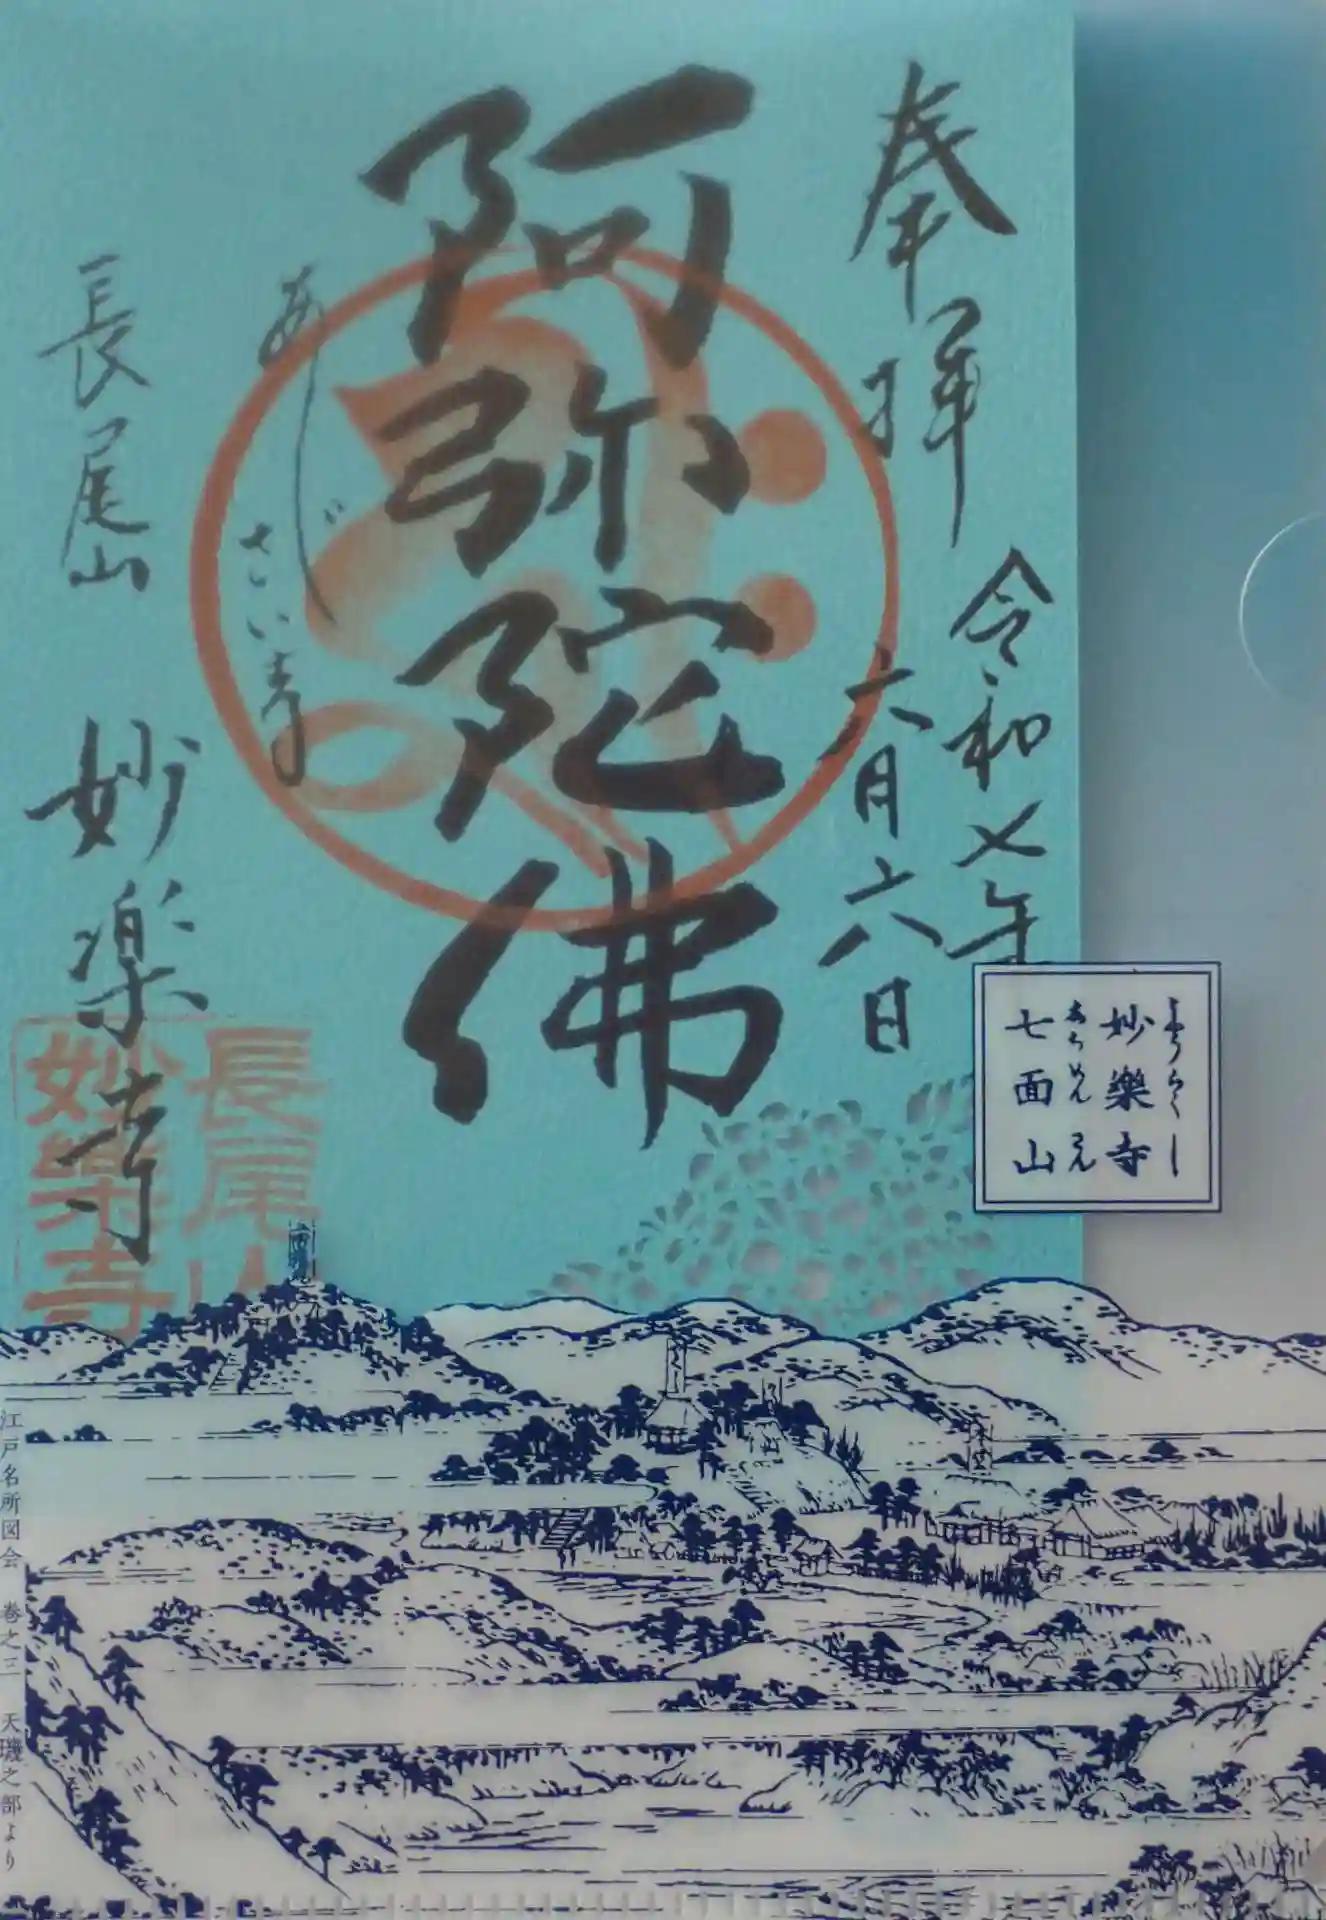 奉拝
令和七年
六月六日
阿弥陀佛
あじさい寺
長尾山
妙楽寺
長尾山
妙樂寺
妙樂寺
七面山
本堂
江戸名所図会 巻之三 天璣之部より